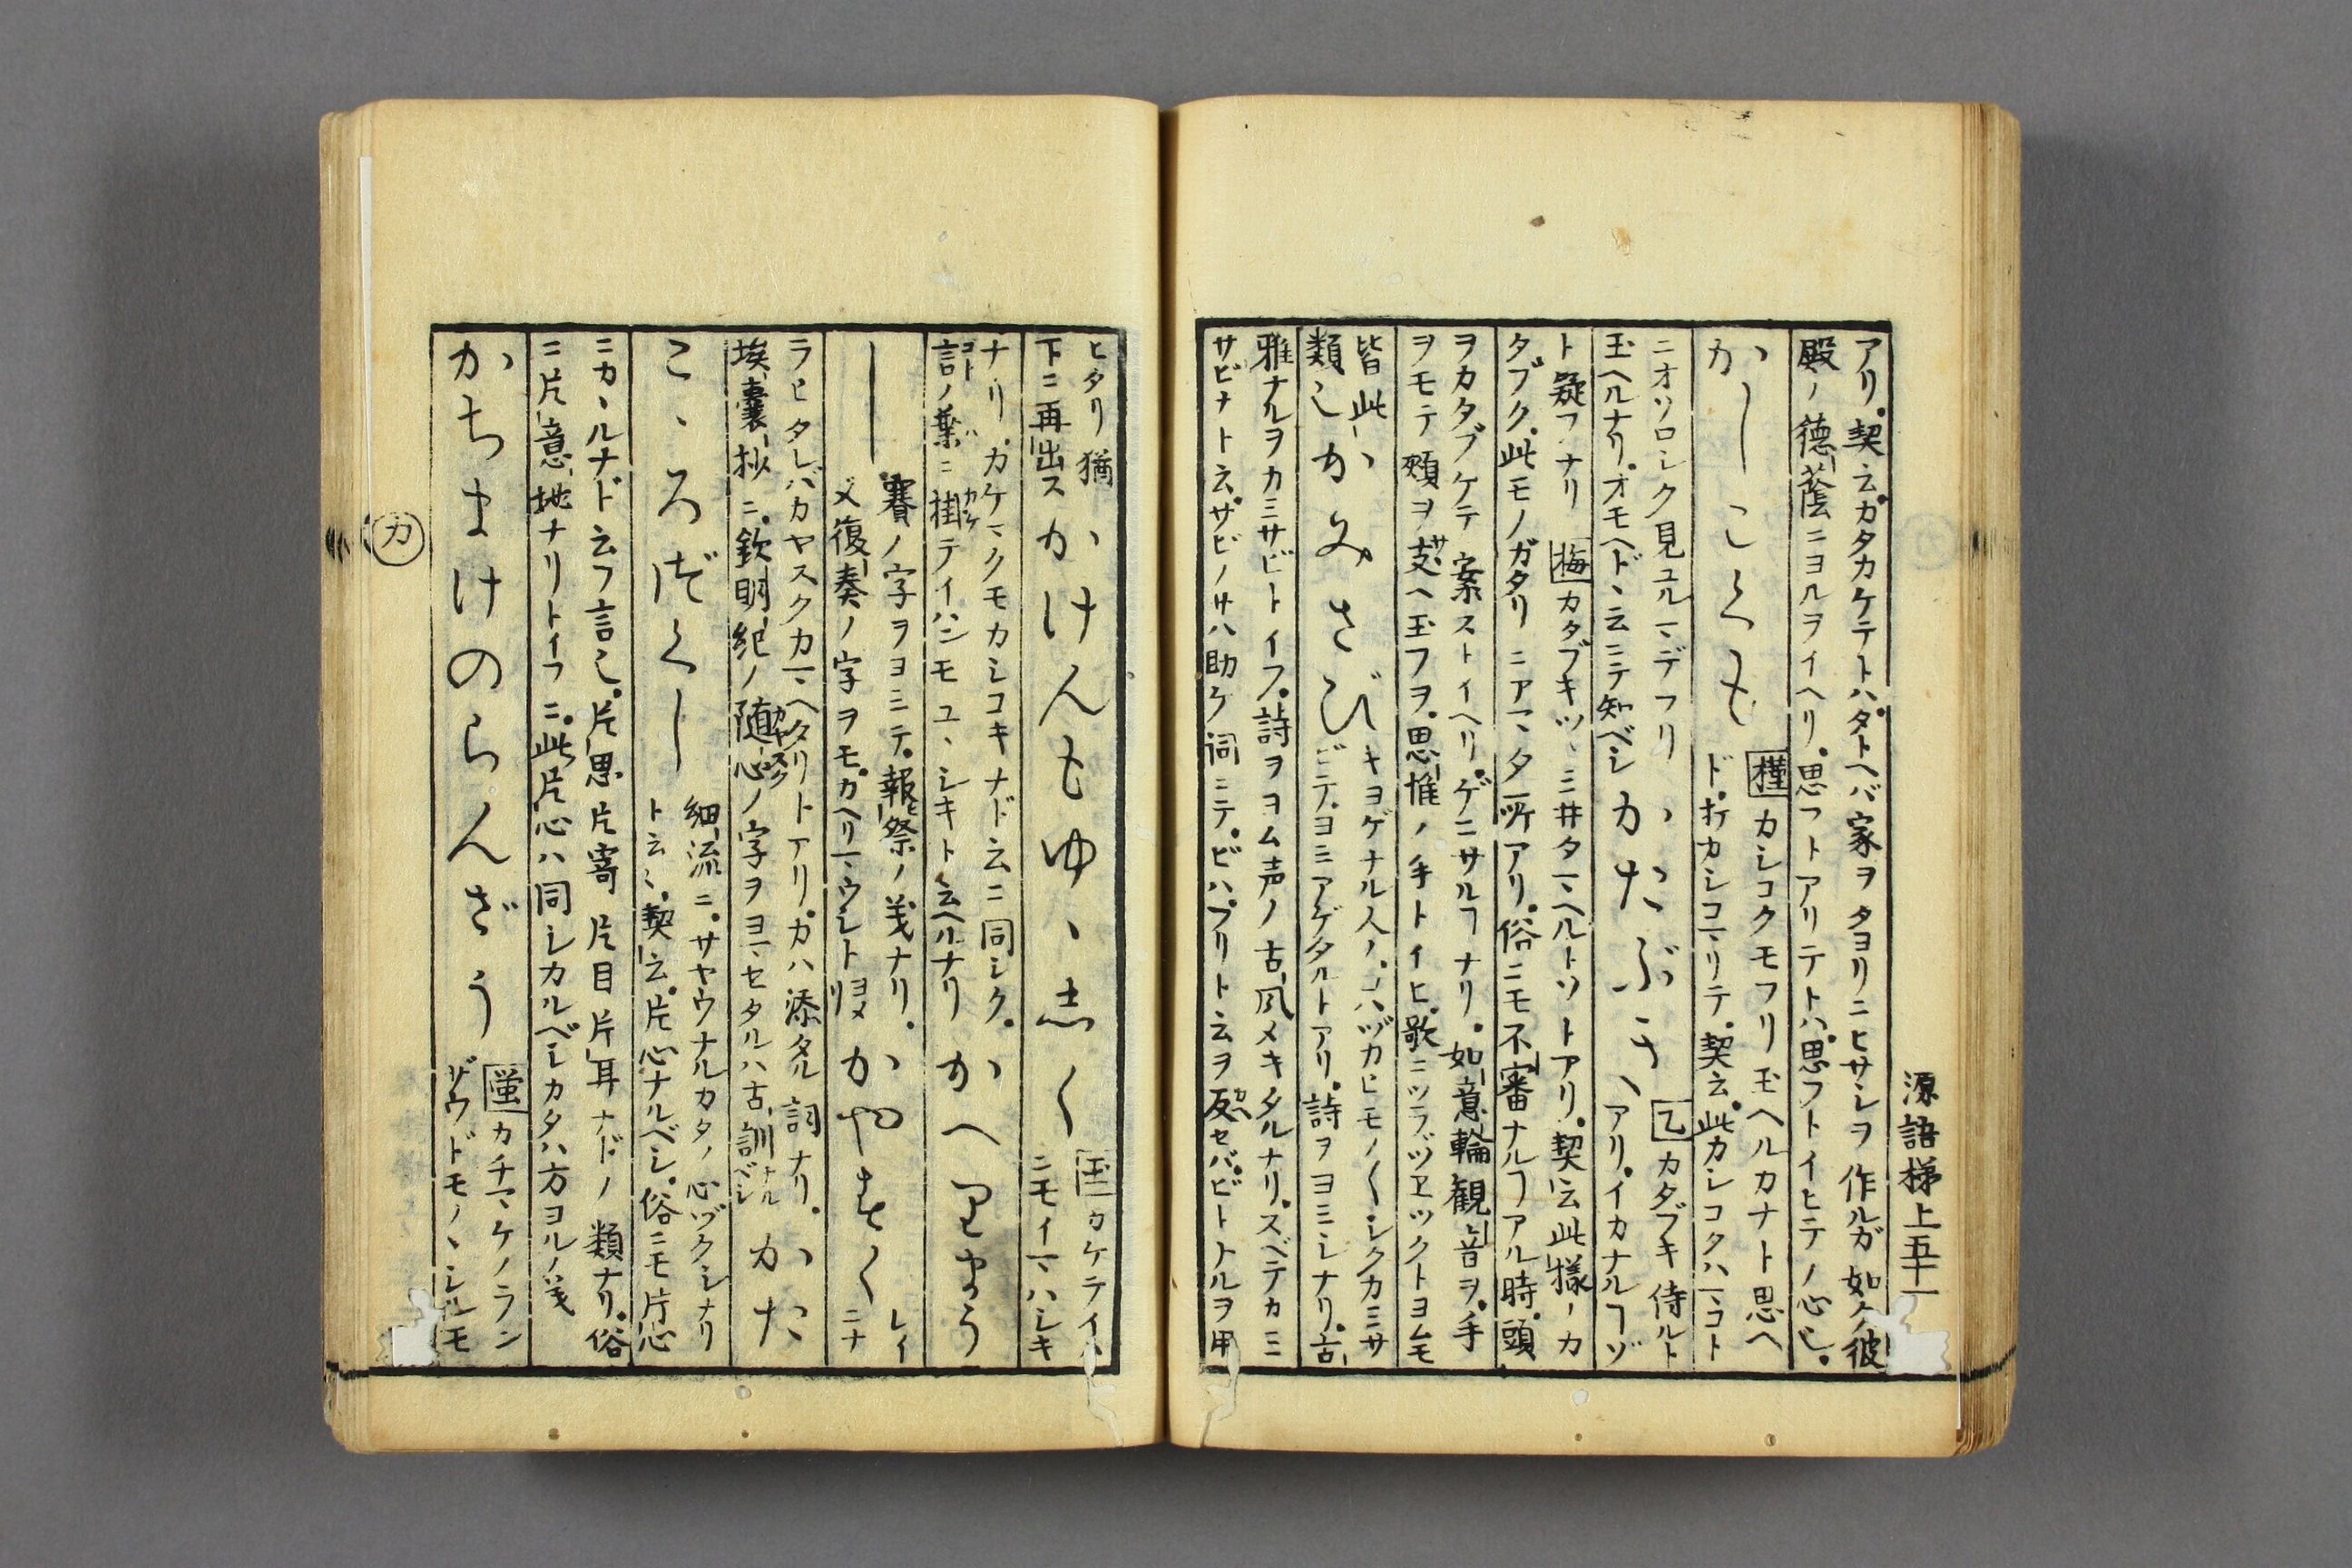 源語梯上五十一
アリ。契云。カタカケテトハ。タトヘバ家ヲタヨリニヒサシヲ作ルガ如ク彼
殿ノ徳蔭ニヨルヲイヘリ。思フトアリテトハ。思フトイヒテノ心也。
かしこくも
槿カシコクモフリ玉ヘルカナト思ヘ
ド。折カシコマリテ。契云。此カシコクハヽコト
ニオソロシク見ユルマデフリ
玉ヘルナリ。オモヘドヽ云ニテ知ベシ
かたぶき
乙カタブキ侍ルト
アリ。イカナルヿゾ
ト疑フナリ
梅カタブキツヽミ井タマヘルトソトアリ。契云此様ノカ
タブク。此モノガタリニアマタ所アリ。俗ニモ不審ナルヿアル時。頭
ヲカタブケテ案ストイヘリ。ゲニサルヿナリ。如意輪観音ヲ。手
ヲモテ頬ヲ支ヘ玉フヲ。思惟ノ手トイヒ。歌ニツラヅヱツクトヨムモ
皆此
類也
かみさび
キヨゲナル人ノ。コハヅカヒモノ〱シクカミサ
ビテ。ヨミアゲタルトアリ。詩ヲヨミシナリ。古
雅ナルヲカミサビトイフ。詩ヲヨム声ノ古風メキタルナリ。スベテカミ
サビナト云。サビノサハ助ケ詞ニテ。ビハ。ブリト云ヲ反セバ。ビトナルヲ用
ヒタリ猶
下ニ再出ス
かけんもゆゝしく
玉カケテイハ
ニモイマハシキ
ナリ。カケマクモカシコキナド云ニ同シク。
言ノ葉ニ掛テイハンモユヽシキト云ヘルナリ
かへりまう
し
賽ノ字ヲヨミテ。報祭ノ義ナリ。
又復奏ノ字ヲモ。カヘリマウシトヨメリ
かやすく
レイ
ニナ
ラヒタレバカヤスクカマヘタリトアリ。カハ添タル詞ナリ。
埃嚢抄ニ。欽明紀ノ随心ノ字ヲヨマセタルハ古訓ナルベシ
かた
こゝろづくし
細流ニ。サヤウナルカタノ心ヅクシナリ
ト云々。契云。片心ナルベシ。俗ニモ片心
ニカヽルナド云フ言也。片思片寄片目片耳ナドノ類ナリ。俗
ニ片意地ナリトイフニ。此片心ハ同シカルベシカタハ方ヨルノ義
かちまけのらんざう
蛍カチマケノラン
ザウドモノヽシルモ
カ